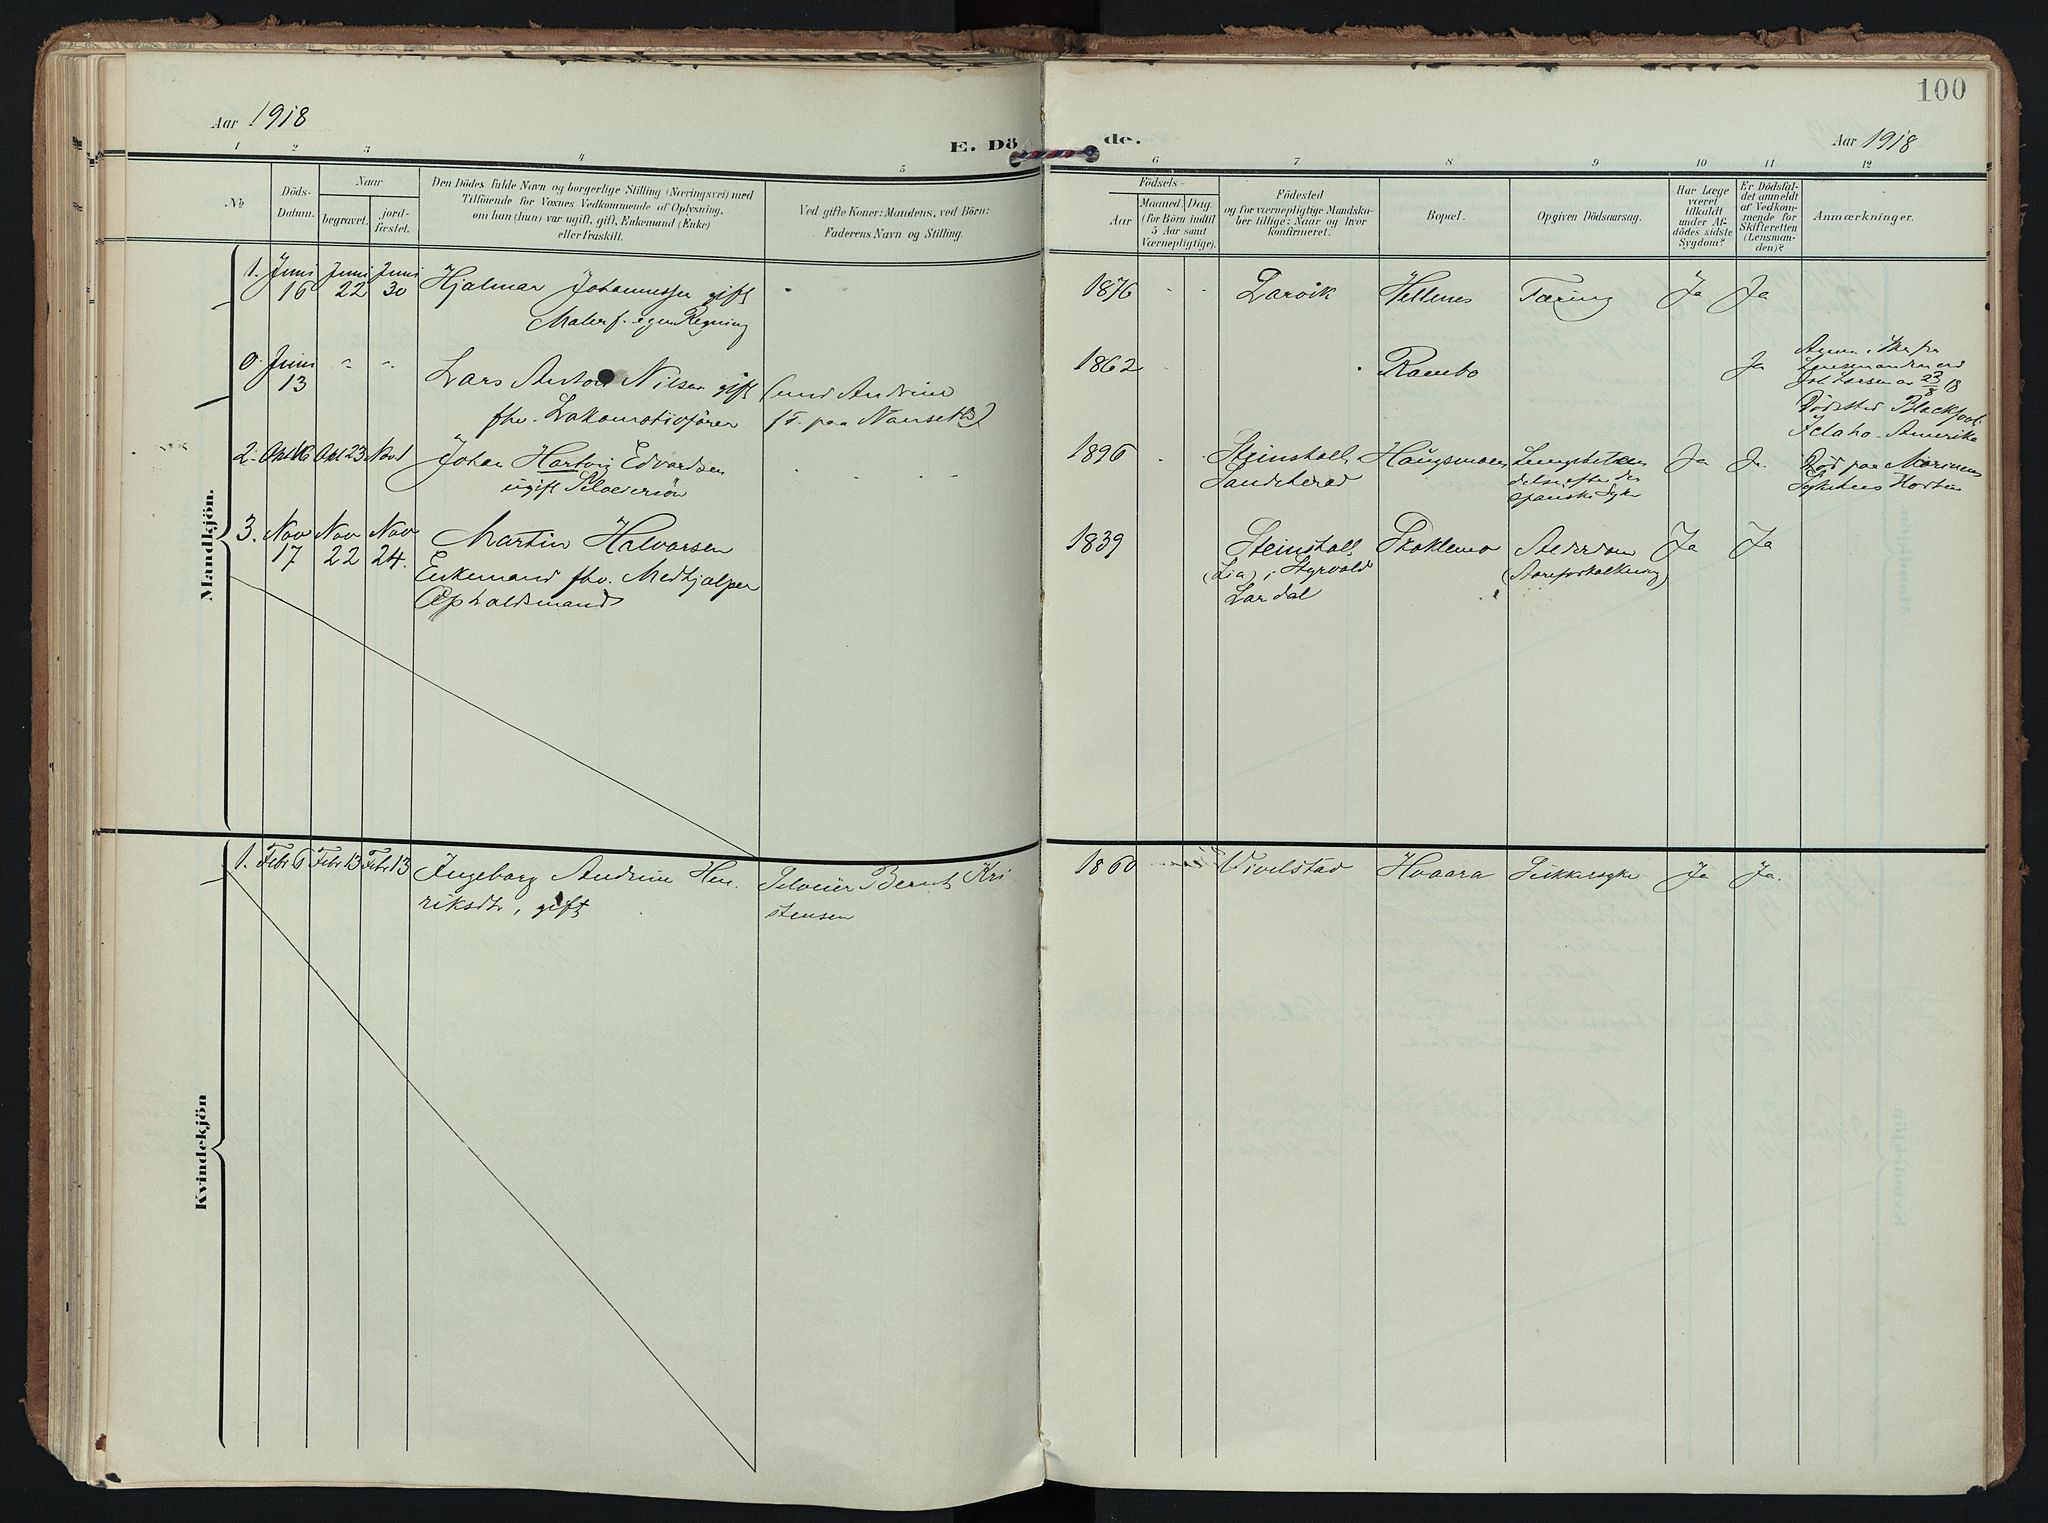 100
Aar 1918
E. Dö
de.
Aar 1918
1 2 3 4 5
6 7 8 9 10 11 12
No
Döds-
Datum.
Naar
begravet.
jord-
fæstet.
Den Dödes fulde Navn og borgerlige Stilling (Næringsvei) med
Tilföiende for Voxnes Vedkommende af Oplysning,
om han (hun) var ugift, gift, Enkemand (Enke)
eller fraskilt.
Ved gifte Koner: Mandens, ved Börn:
Faderens Navn og Stilling.
Födsels-
Aar
Maaned. Dag.
(for Börn indtil
5 Aar samt
Værnepligtige).
Födested
og for værnepligtige Mandska-
ber tillige: Naar og hvor
konfirmeret.
Bopæl.
Opgiven Dödsaarsag.
Har Læge
været
tilkaldt
under Af-
dödes sidste
Sygdom?
Er Dödsfal-
det anmeldt
af Vedkom-
mende for
Skifteretten
(Lensman-
den)?
Anmærkninger.
Mandkjön.
1. Juni Juni Juni Hjalmar Johannessen gift
16 22 30
Maler f. egen Regning
1876 Larvik Hellenes Tæring Ja Ja
0. Juni
13
Lars Anton Nilsen gift
(med Andrine
fhv. Lokomotivfører
f. paa Nanseth)
1862 Rambo Ja
Lensmanden ved
Larsen av 23/8 18
Dödssted Blackfoot
Idaho - Amerika
2. Okt 16 Okt 23 Nov 1 Johan Hartvig Edvardsen
ugift Selveiersøn
1896 Steinsholt Haugsmoen
Sandeherad
spanske Syke
Ja Ja
Død paa Marinens
Sykehus Horten
3. Nov Nov Nov Martin Halvorsen
17 22 24.
Enkemand fhv. Medhjælper
Opholdsmand
1839 Steinsholt
(Lia) i Styrvold
Lardal
Alderdom
(Aareforkalkning)
Ja Ja
Kvindekjön
1. Febr 6 Febr 13 Febr 13 Ingeborg Andrine Hen-
riksdtr, gift
Selveier Bernt Kri
stensen
1860 Vivelstad Hvaara Sukkersyke Ja Ja.